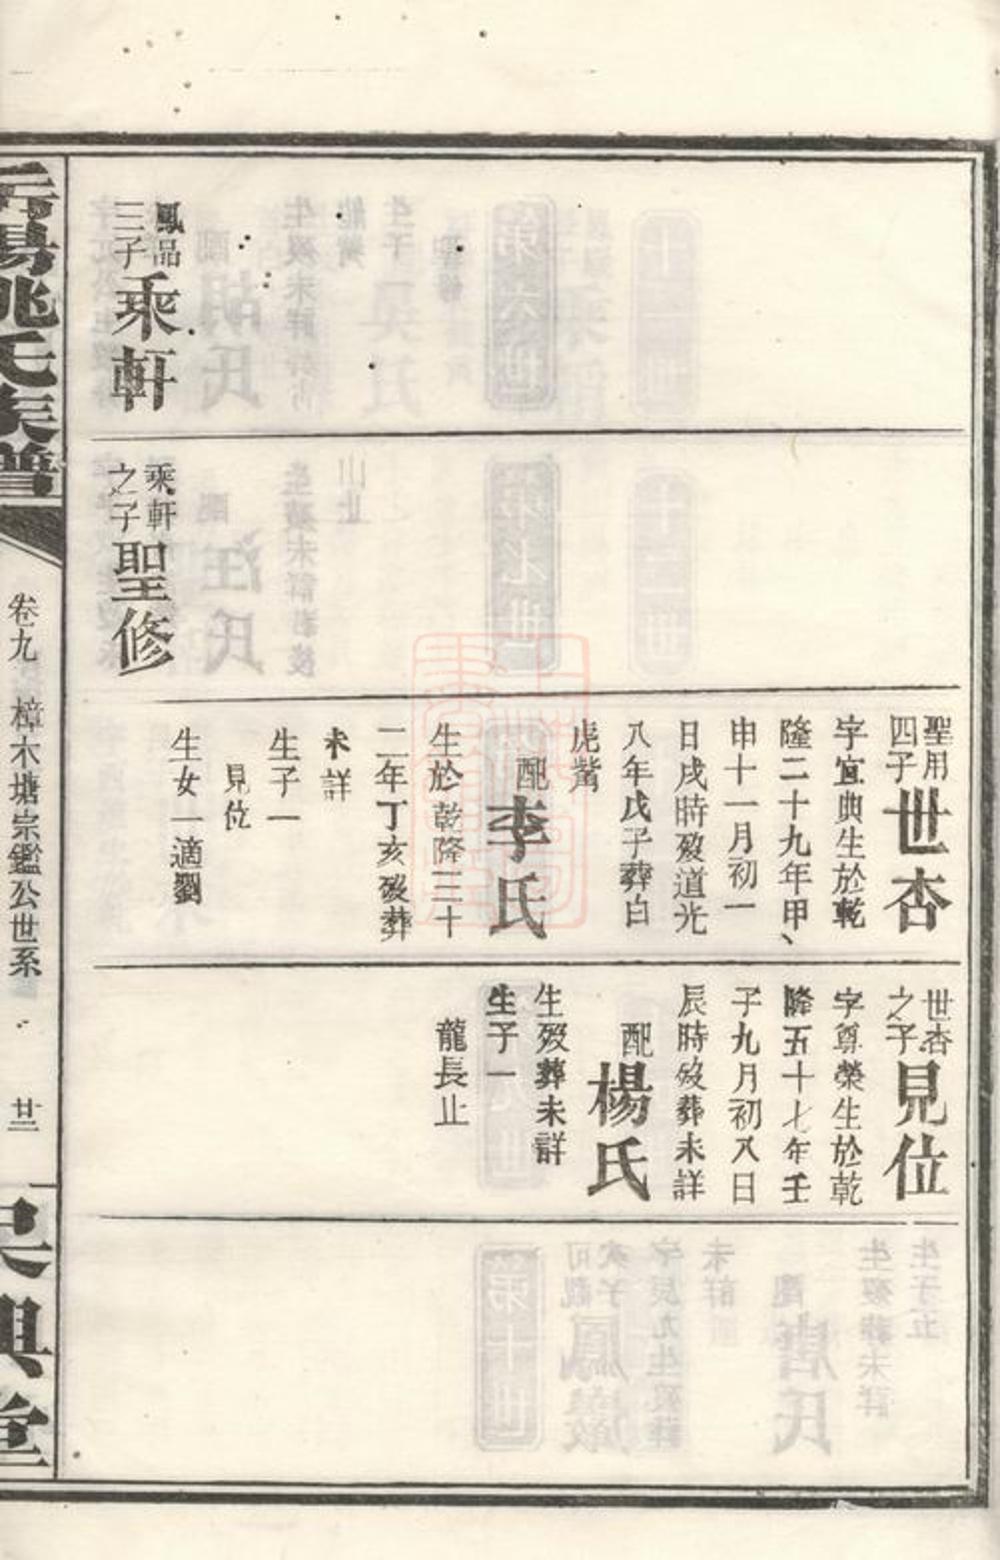 鳳品
三子
乘軒
乘軒
之子
聖修
聖用
四子
世杏
字宜典生於乾
隆二十九年甲、
申十一月初一
日戌時歿道光
八年戊子葬白
虎嘴
配
李氏
生於乾隆三十
二年丁亥歿葬
未詳
生子一
見位
生女一適劉
世杏
之子
見位
字尊榮生於乾
隆五十七年壬
子九月初八日
辰時歿葬未詳
配
楊氏
生歿葬未詳
生子一
龍長止
姚氏族譜
卷九
樟木塘宗鑑公世系
廿三